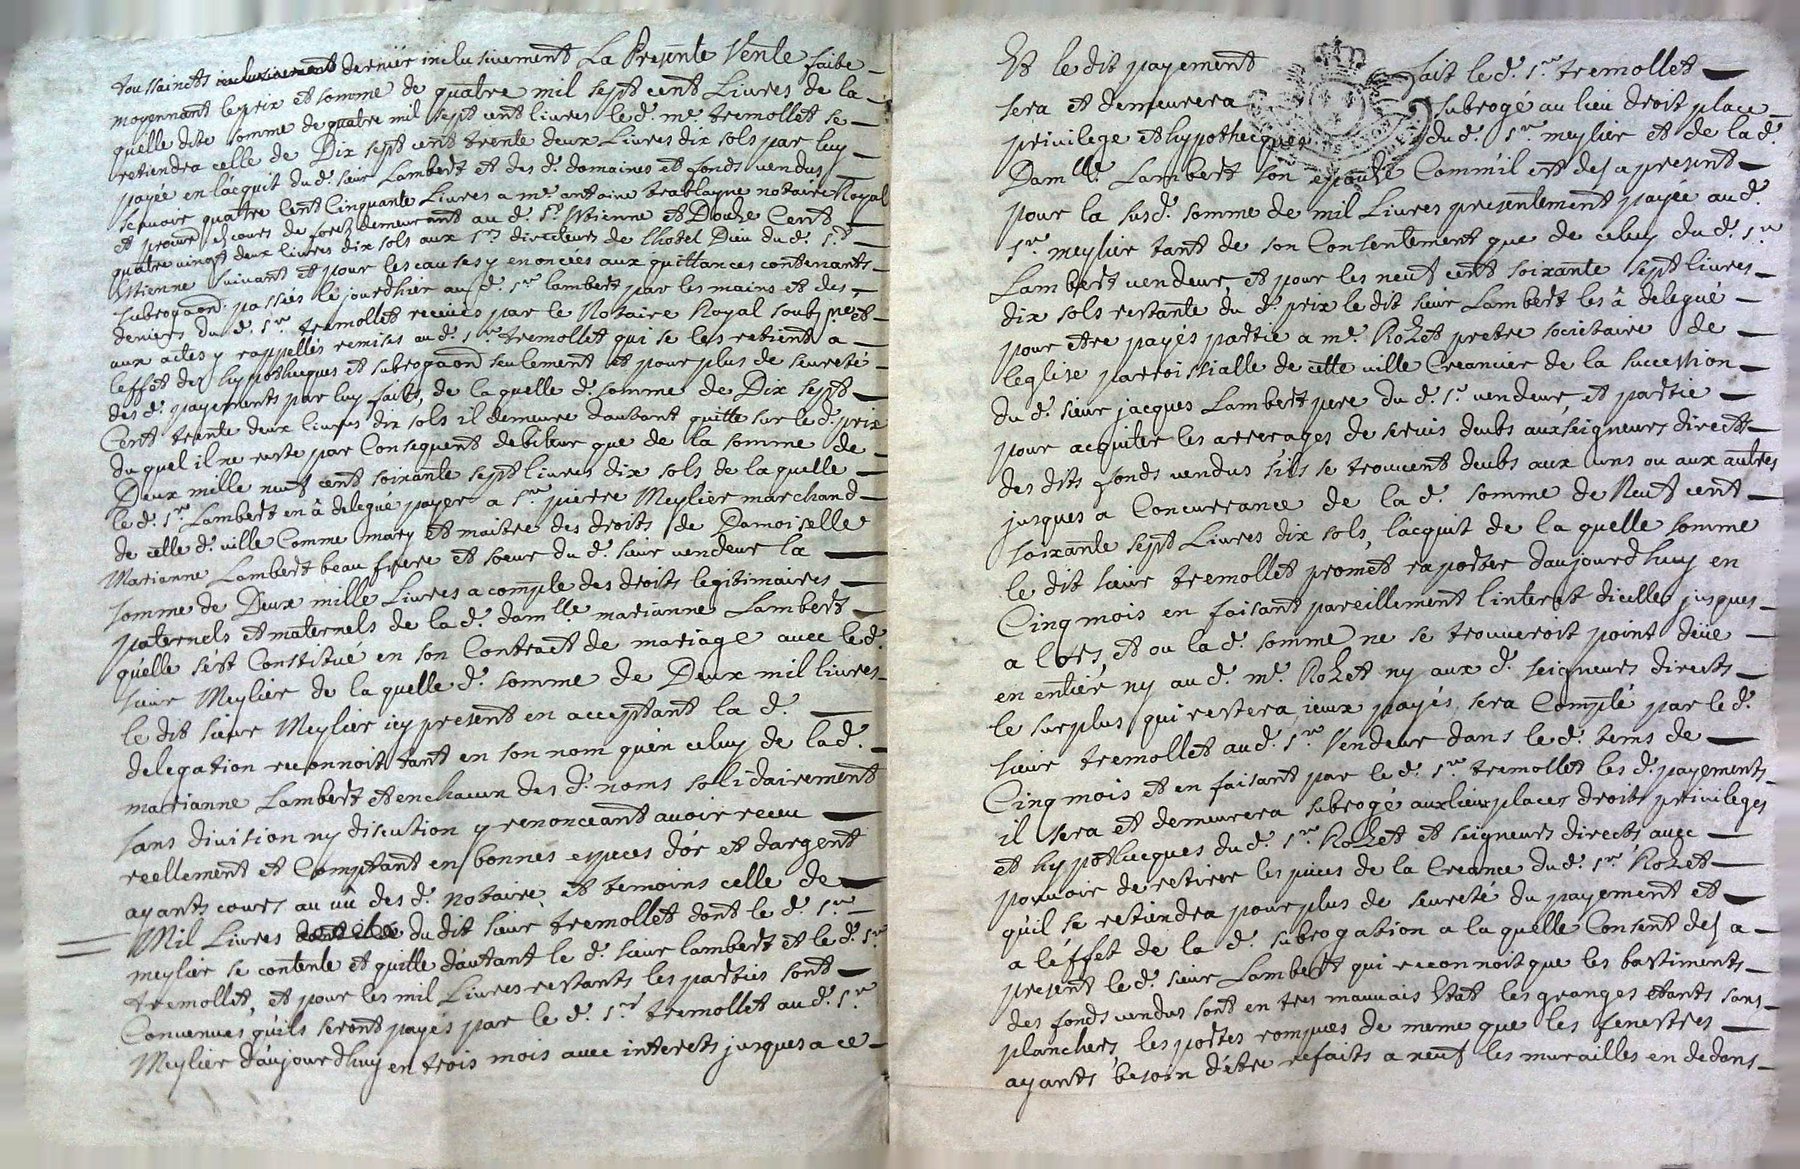 toussainets dernier inclusivement La Presente Vente faite
moyennant le prix et somme de quatre mil sept cent Livres de la
quelle dite somme de quatre mil sept cent livres le d. me. tremollet se
retiendra celle de Dix sept cent trente deux Livres dix sols par luy
payée en lacquit du d. sieur Lambert et des d. domaines et fonds vendus
scavoir quatre Cent Cinquante Livres a me. antoine trablayne notaire Royal
et procur. es cours de forez demeurant au d. St. Estienne et Douze Cent
quatre vingt deux livres dix sols aux srs. directeurs de lhotel Dieu du d. St.
Estienne suivant et pour les causes y enoncées aux quittances contenants
subrogaon. passées le jourdhier au d. sr. lambert par les mains et des
deniers du d. sr. tremollet receues par le Notaire Royal soubz. net
aux actes y rappellés remises au d. sr. tremollet qui se les retient a
leffet des hypotheques et subrogaon seulement et pour plus de seureté
des d. payements par luy faits, de la quelle d. somme de Dix sept
Cent trente deux livres dix sols il demeure dautant quitte sur le d. prix
du quel il ne reste par Consequent debiteur que de la somme de
Deux mille neuf cent soixante sept livres dix sols de la quelle
le d. sr. Lambert en â delegué payer a sr. pierre Meylier marchand
de cette d. ville Comme mary et maitre des droits de Damoiselle
Marianne Lambert beau frere et soeur du d. sieur vendeur la
somme de Deux mille Livres a compte des droits legitimaires
paternels et maternels de la d. damlle. marianne Lambert
qu'elle s'ést Constitué en son Contract de mariage avec le d.
sieur Meylier de la quelle d. somme de Deux mil livres
le dit sieur Meylier icy present en acceptant la d.
delegation reconnoit tant en son nom quen celuy de la d.
marianne Lambert et en chacun des d. noms solidairement
sans division ny discution y renonceant avoir receu
reellement et Comptant en bonnes especes d'or et dargent
ayants cours au vû des d. notaire et temoins celle de
Mil Livres du dit sieur tremollet dont le d. sr.
meylier se contente et quitte d'autant le d. sieur lambert et le d. sr.
tremollet, et pour les mil Livres restants les parties sont
Convenues, qu'ils seront payés par le d. sr. tremollet au d. sr.
Meylier d'aujourdhuy en trois mois avec interets jusques a ce
Et le dit payement fait le d. sr. tremollet
sera et demeurera subrogé au lieu droit place
privilege et hypotheques du d. sr. meylier et de la d.
Damlle. Lambert son epouze Comm'il est des a present
pour la susd. somme de mil Livres presentement payée au d.
sr. meylier tant de son Consentement que de celuy du d. sr.
Lambert vendeur, et pour les neuf cent soixante sept livres
dix sols restante du d. prix le dit sieur Lambert les â delegué
pour etre payés partie a me. Rozet pretre societaire de
leglise parroissialle de cette ville Creancier de la succession
du d. sieur jacques Lambert pere du d. sr. vendeur et partie
pour acquiter les arrerages de servis deubs aux seigneurs directs
des dits fonds vendus s'ils se trouvent deubs aux uns ou aux autres
jusques a Concurrance de la d. somme de Neuf cent
soixante sept Livres dix sols, lacquit de la quelle somme
le dit sieur tremollet promet raporter daujourdhuy en
Cinq mois en faisant pareillement l'interet dicelles jusques
a lors, et ou la d. somme ne se trouveroit point deüe
en entier ny au d. me. Rozet ny aux d. seigneurs directs
le surplus qui restera, jceux payés, sera Compté par le d.
sieur tremollet au d. sr. Vendeur dans le d. tems de
Cinq mois et en faisant par le d. sr. tremollet les d. payements
il sera et demeurera subrogé aux lieux places droits privileges
et hypotheques du d. sr. Rozet et seigneurs directs avec
pouvoir de retirer les pieces de la Creance du d. sr. Rozet
qu'il se retiendra pour plus de seureté du payement et
a l'éffet de la d. subrogation a la quelle Consent des a
present le d. sieur Lambert qui reconnoit que les bastiments
des fonds vendus sont en tres mauvais Etat les granges etants sans
planchers, les portes rompues de meme que les fenestres
ayants besoin d'étre refaits a neuf les murailles en dedans